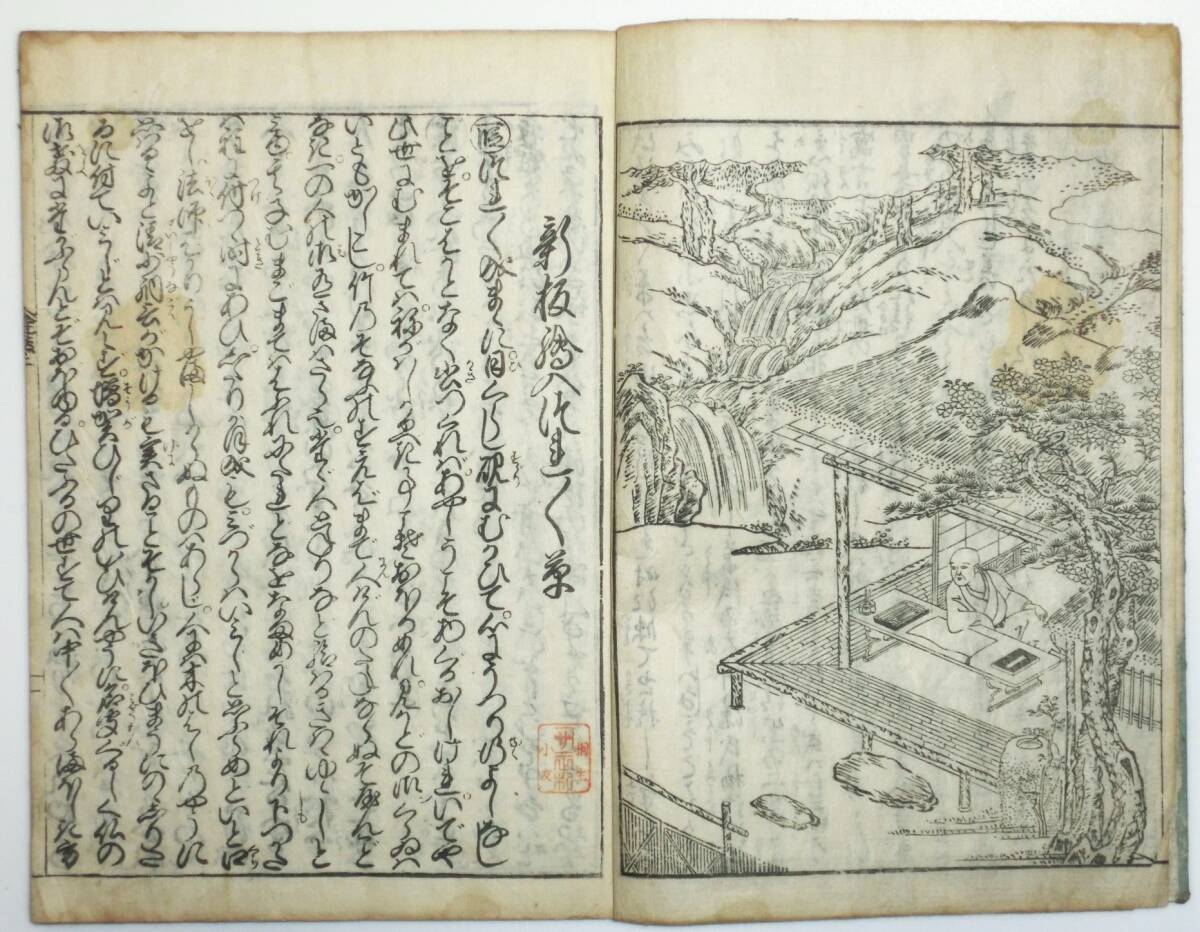 新板繪入つれ〳〵草
序つれ〳〵のまゝに日くらし硯にむかひて心にうつり行よしなし
ことをそこはかとなく書つくれバあやしうこそ物ぐるおしけれいでや
此世にむまれてハねがハしかるべき事こそおほかめれ見かどの御くらゐハ
いともかしこし竹のそのふのすゑばまで人間のたねならぬぞやんごと
なき一の人の御有さまハさら也たゞ人も舎人など給はるきハゝゆゝしと
見ゆ子むまごまてハはふれにたれとなをなまめかしそれより下つかた
ハ程に付つゝ時にあひしたりがほ成もミづからハいみじと思ふらめといと口
おし法師ばかりうら山しからぬものハあらじ人にハ木のはしのやうに
思ハるゝよと清少納言がかけるも実さることぞかしいきほひまうにのゝしりた
るに付ていみじとハみえず増賀ひじりのいひけんやうに名聞くるしく仏の
御教にたがふらんとぞおぼゆるひたふるの世すて人ハ中〳〵あらまほしき方